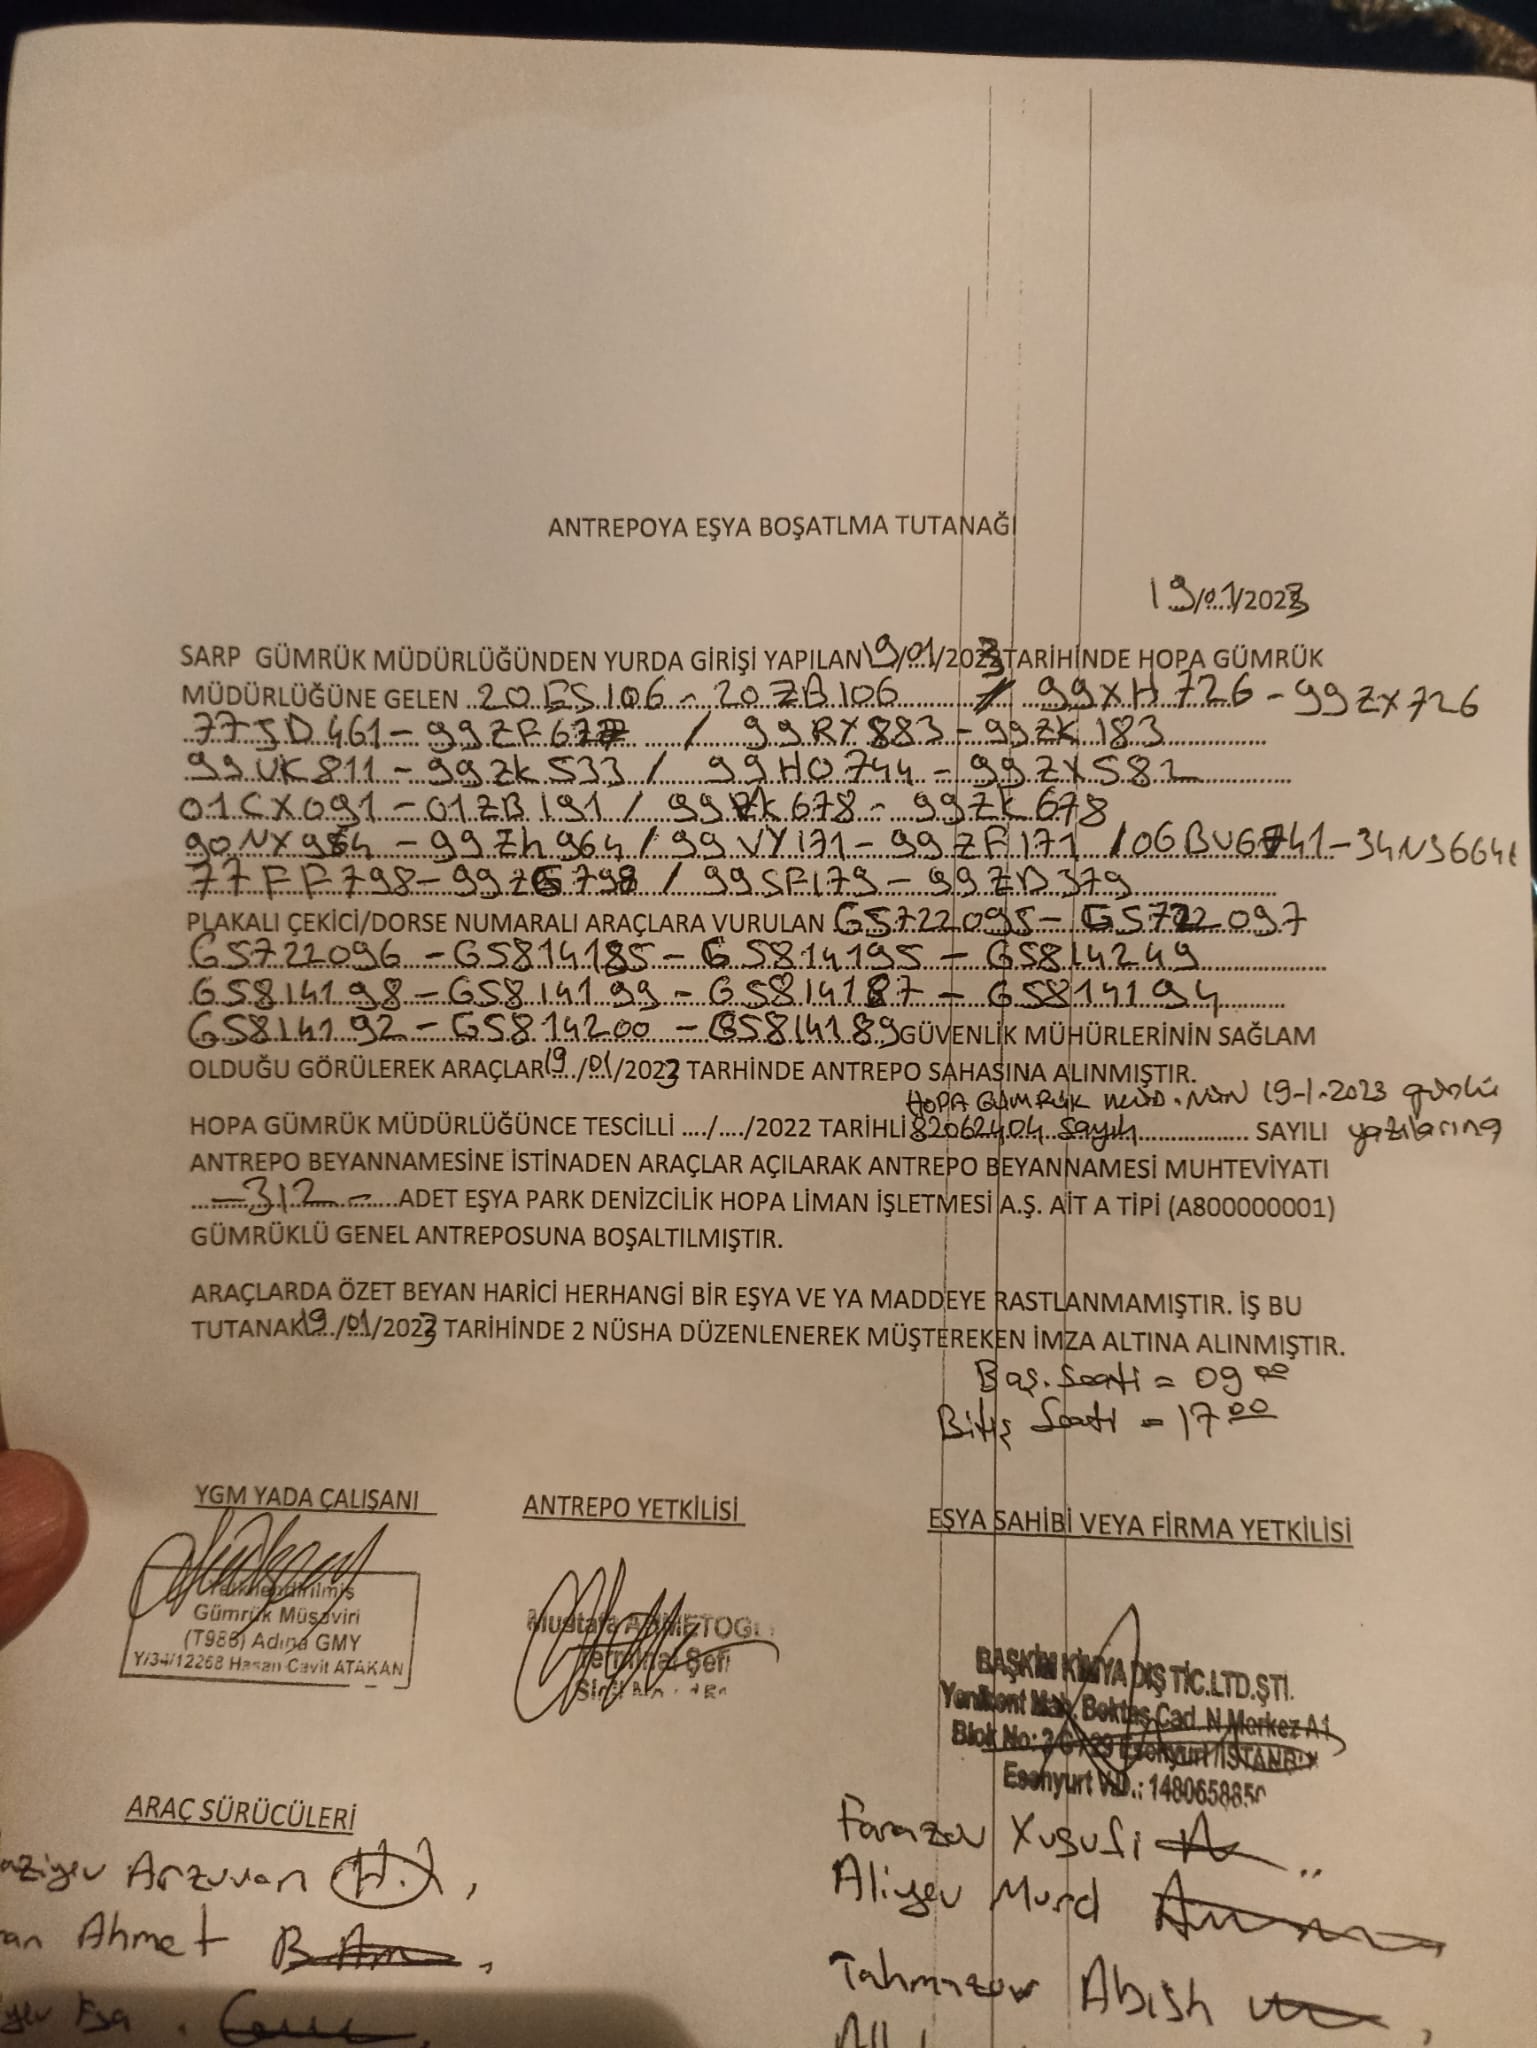 ANTREPOYA EŞYA BOŞATLMA TUTANAĞI
19/01/2023
SARP GÜMRÜK MÜDÜRLÜĞÜNDEN YURDA GİRİŞİ YAPILAN 19/01/2023 TARİHİNDE HOPA GÜMRÜK
MÜDÜRLÜĞÜNE GELEN 20ES106 - 20ZB106 / 99XH726 - 99ZX726
77JD461 - 99ZF677 / 99RX883 - 99ZK183
99UK811 - 99ZK533 / 99HO744 - 99ZX582
01CX091 - 01ZB191 / 99 678 - 99ZK678
90NX964 - 99Zh964 / 99VY171 - 99ZF171 / 06BV6741 - 
77FF798 - 99ZG798 / 99SF179 - 99ZD379
PLAKALI ÇEKİCİ/DORSE NUMARALI ARAÇLARA VURULAN GS722095 - GS722097
GS722096 - GS814185 - GS814195 - GS814249
GS814198 - GS814199 - GS814187 - GS814194
GS814192 - GS814200 - GS814189 GÜVENLİK MÜHÜRLERİNİN SAĞLAM
OLDUĞU GÖRÜLEREK ARAÇLAR 19/01/2023 TARHİNDE ANTREPO SAHASINA ALINMIŞTIR.
HOPA GÜMRÜK MÜD.NÜN 19-1-2023 günlü
HOPA GÜMRÜK MÜDÜRLÜĞÜNCE TESCİLLİ ..../..../2022 TARİHLİ 82062404 sayılı SAYILI yazılarına
ANTREPO BEYANNAMESİNE İSTİNADEN ARAÇLAR AÇILARAK ANTREPO BEYANNAMESİ MUHTEVİYATI
-312- ADET EŞYA PARK DENİZCİLİK HOPA LİMAN İŞLETMESİ A.Ş. AİT A TİPİ (A800000001)
GÜMRÜKLÜ GENEL ANTREPOSUNA BOŞALTILMIŞTIR.
ARAÇLARDA ÖZET BEYAN HARİCİ HERHANGİ BİR EŞYA VE YA MADDEYE RASTLANMAMIŞTIR. İŞ BU
TUTANAK 19/01/2023 TARİHİNDE 2 NÜSHA DÜZENLENEREK MÜŞTEREKEN İMZA ALTINA ALINMIŞTIR.
Baş. Saati = 09 00
Bitiş Saati = 17 00
YGM YADA ÇALIŞANI ANTREPO YETKİLİSİ EŞYA SAHİBİ VEYA FİRMA YETKİLİSİ
Yetkilendirilmiş
Gümrük Müşaviri
(T986) Adına GMY
Y/34/12268 Hasan Cavit ATAKAN
Mustafa
Terminal Şefi
BAŞKİM KİMYA DIŞ TİC.LTD.ŞTİ.
Yenikent Mah. Bektaş Cad. N Merkez A1
Blok No: Esenyurt /İSTANBUL
Esenyurt V.D.:
ARAÇ SÜRÜCÜLERİ
Arzuman H.A,
Ahmet
Esa
Farazov Yusufi
Aliyev Murd
Tahmazov Abish